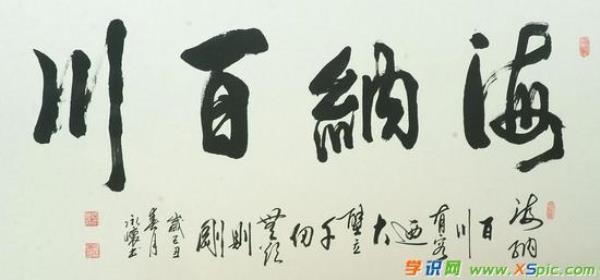 海納百川
海納百川有容迺大壁立千仞無欲則剛
歲己丑
春月
学识网
www.XSpic.com